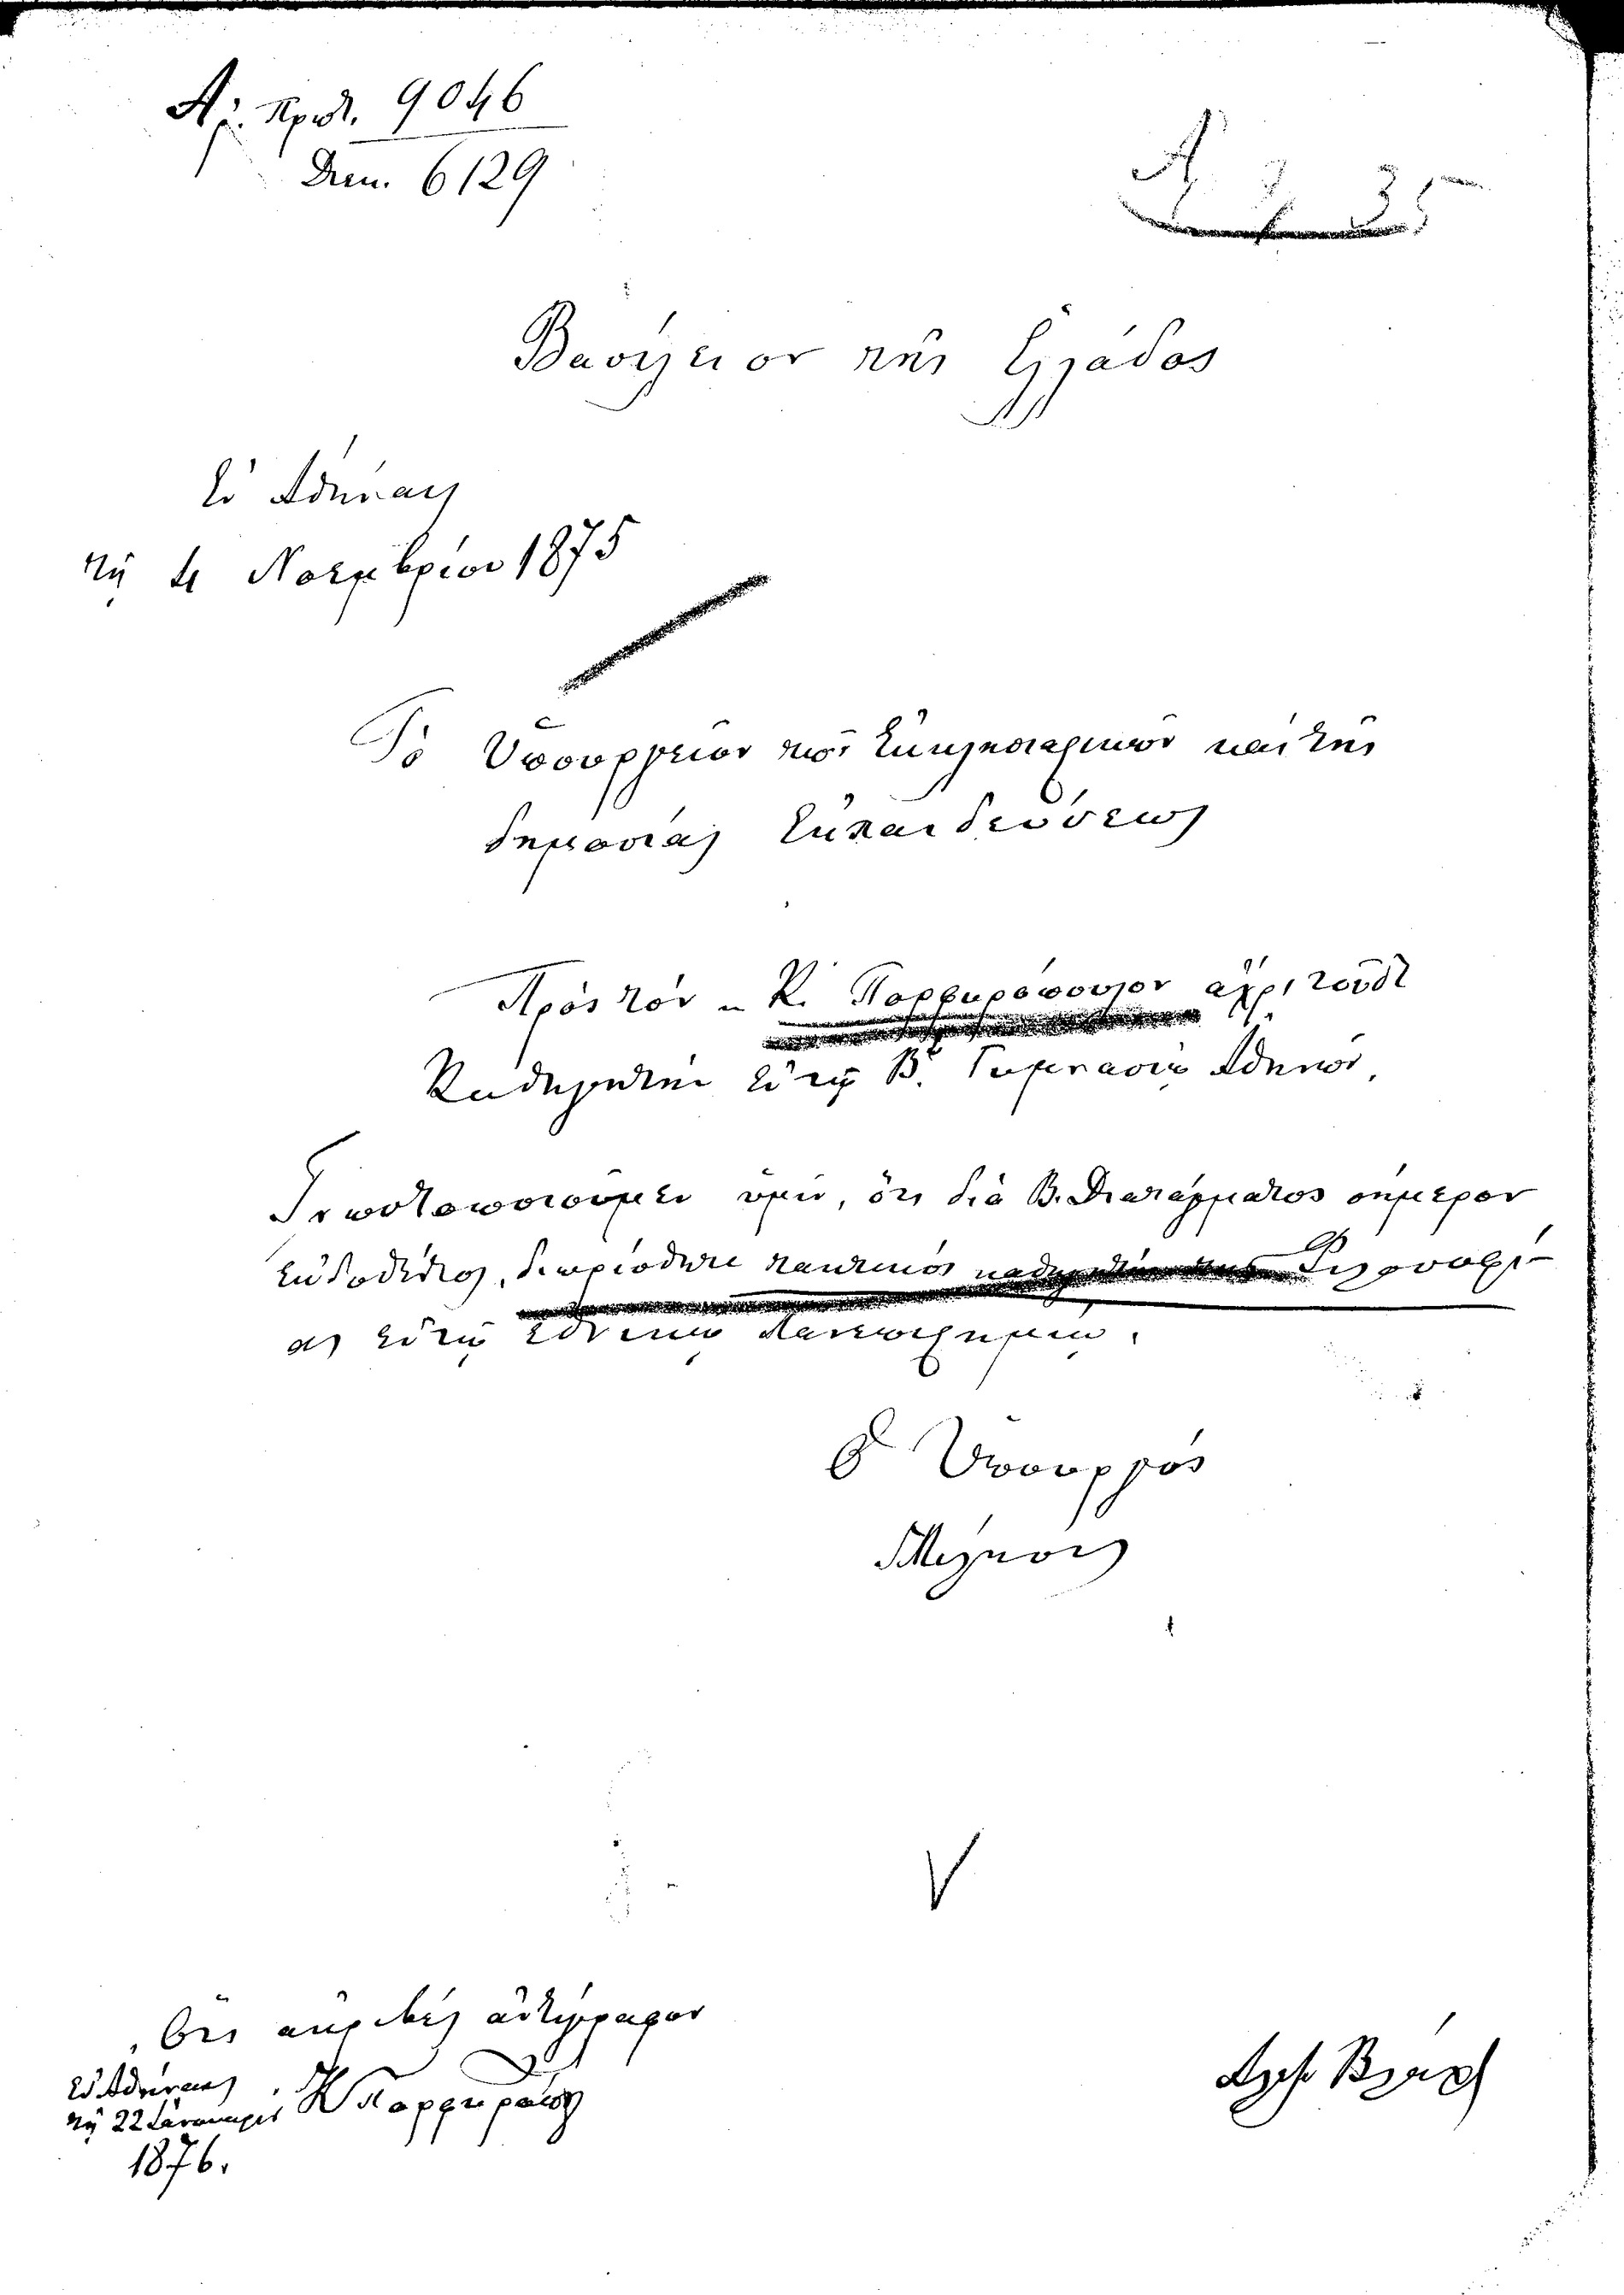 Ἀρ. Πρωτ. 9046
Διεκπ. 6129
Α 7 35
Βασίλειον τῆς Ἑλλάδος
Ἐν Ἀθήναις
τῇ 4 Νοεμβρίου 1875
Τὸ Ὑπουργεῖον τῶν Ἐκκλησιαστικῶν καὶ τῆς
δημοσίας Ἐκπαιδεύσεως
Πρὸς τὸν κ. Κ. Πορφυρόπουλον ἄχρι τοῦδε
Καθηγητὴν ἐν τῷ Β. Γυμνασίῳ Ἀθηνῶν,
Γνωστοποιοῦμεν ὑμῖν, ὅτι διὰ Β. Διατάγματος σήμερον
ἐκδοθέντος, διωρίσθητε τακτικὸς καθηγητὴς τῆς Φιλοσοφί-
ας ἐν τῷ ἐθνικῷ Πανεπιστημίῳ.
Ὁ Ὑπουργὸς
Ὅτι ἀκριβὲς ἀντίγραφον
Ἐν Ἀθήναις
τῇ 22 Ἰανουαρίου
1876.